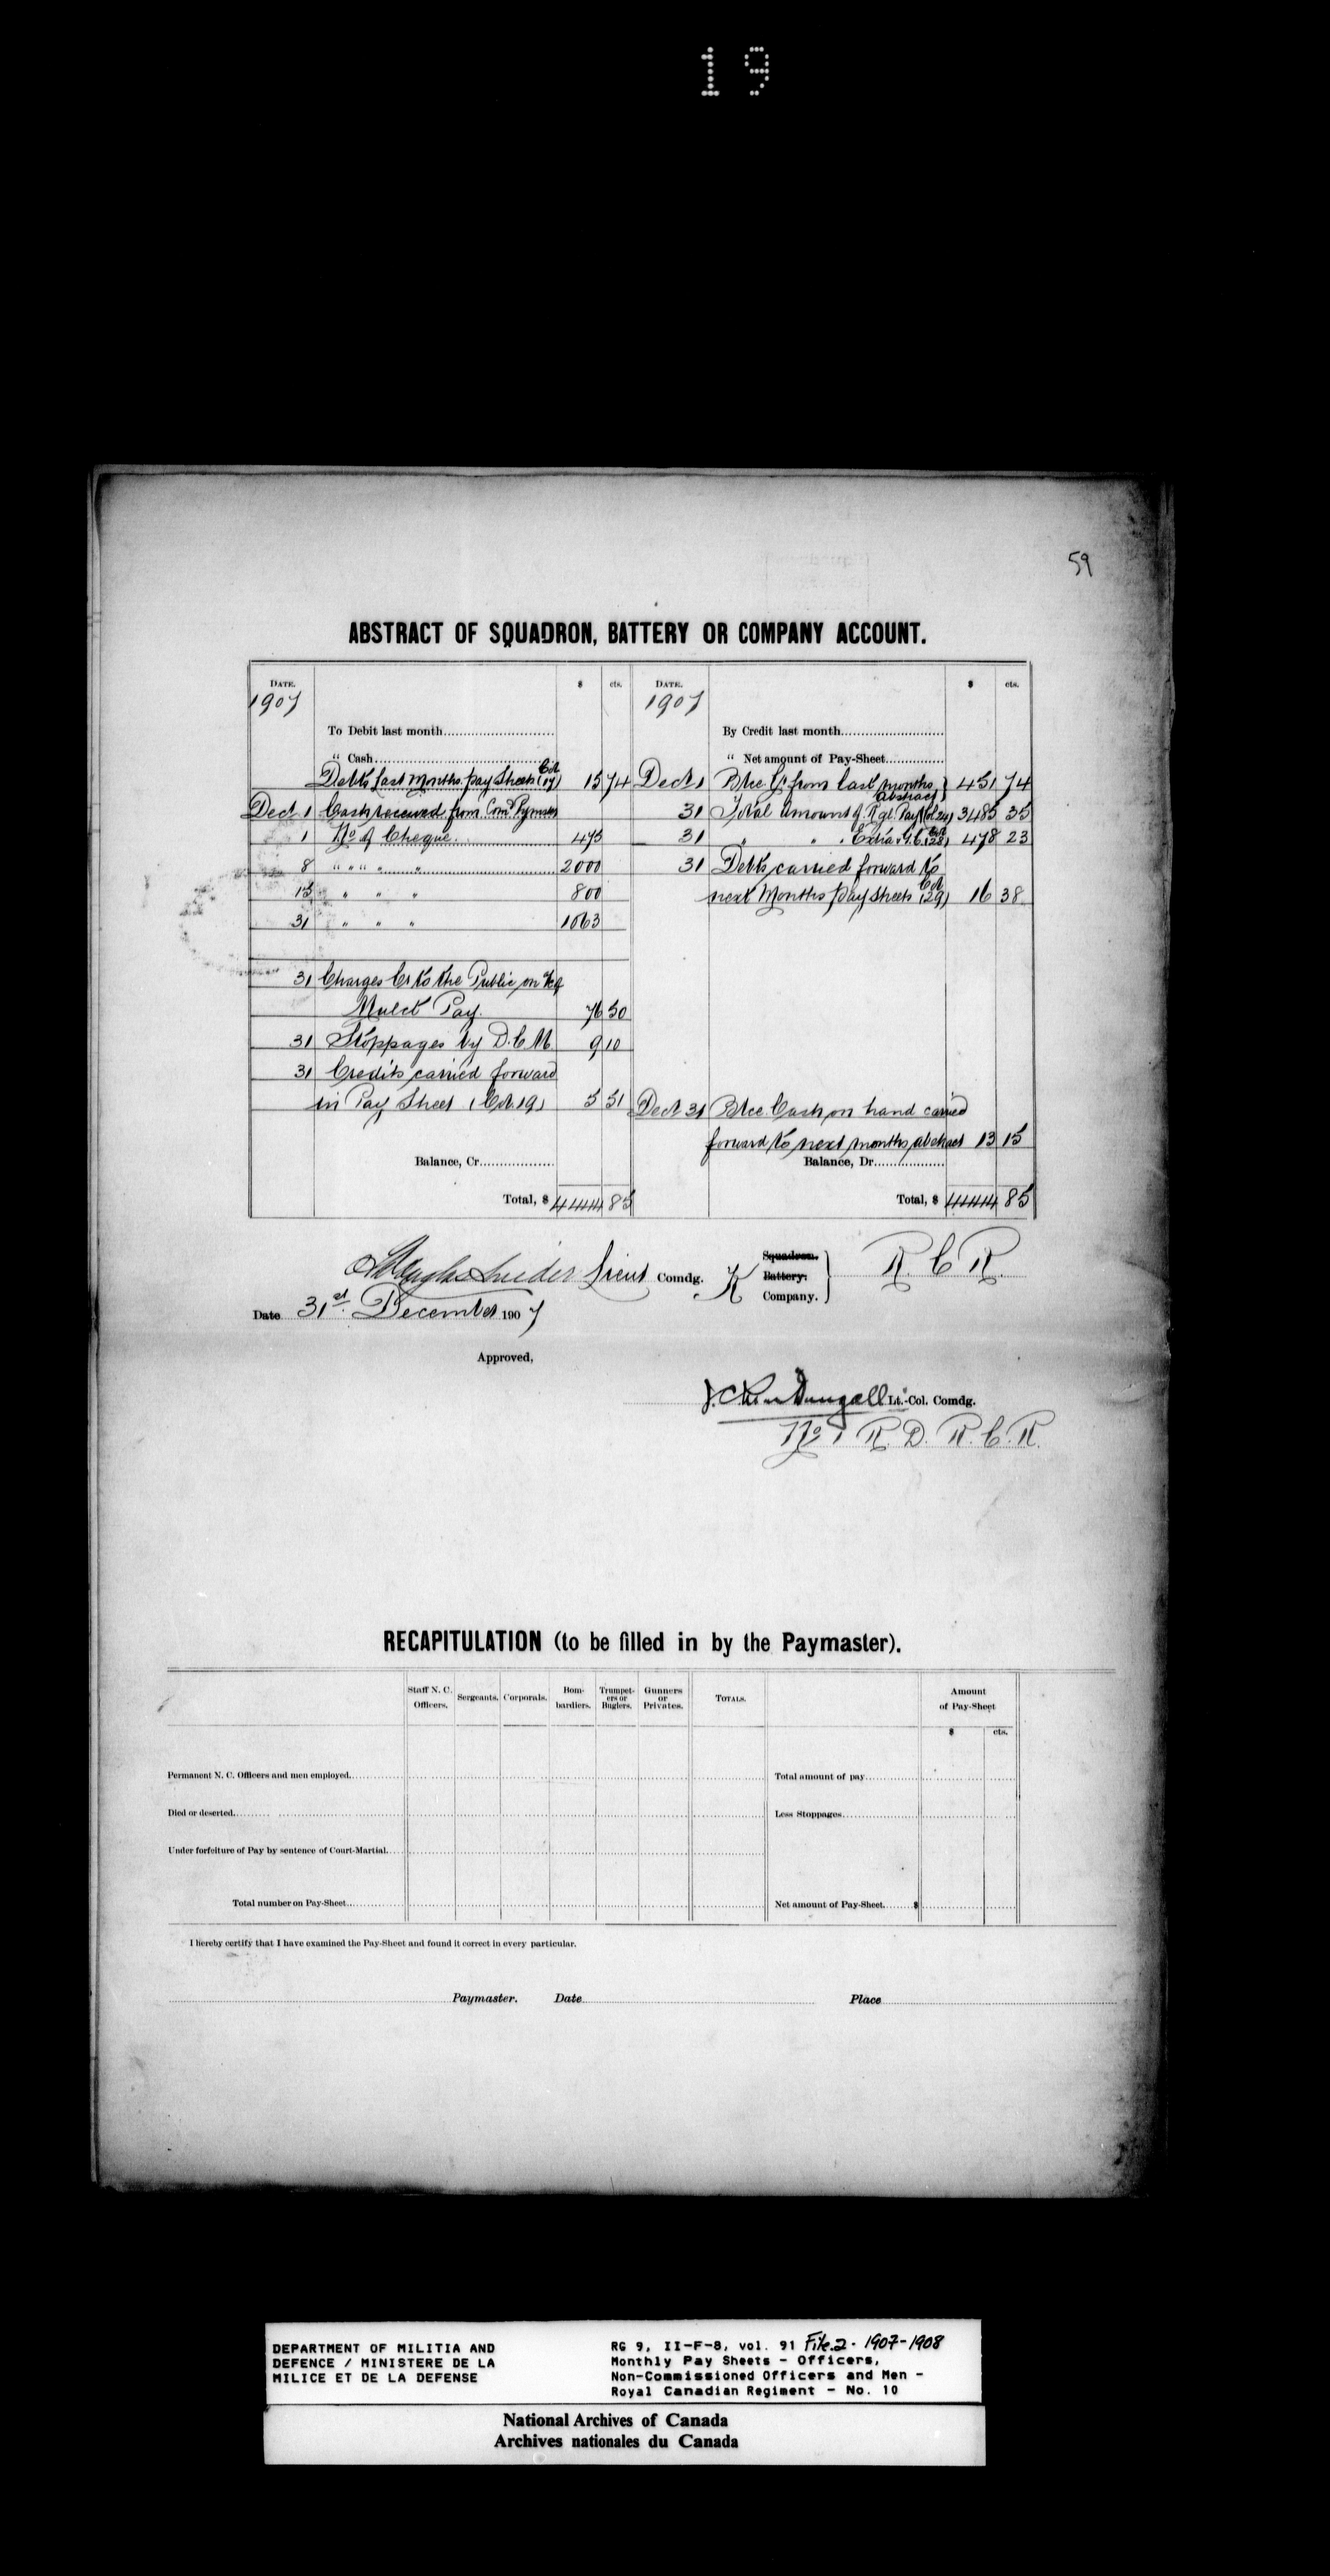 19
59
ABSTRACT OF SQUADRON, BATTERY OR COMPANY ACCOUNT.
DATE. $ cts. DATE. $ cts.
1907 1907
To Debit last month By Credit last month
" Cash " Net amount of Pay-Sheet
Debts last Months Pay Sheets (Col 17) 15 74 Dec 1 Blce Cr from last months Abstract } 451 74
Dec 1 Cash received from Comd Pymaster 31 Total Amount of Rgl. Pay (Col 24) 3485 35
1 No of Cheque 475 31 " " " Extra & G.C. (Col 28) 478 23
8 " " " " " 2000 31 Debts carried forward to
15 " " " 800 next Months Pay Sheets (Col 29) 16 38
31 " " " 1063
31 Charges Cr to the Public on Acq
Mulct Pay. 76 50
31 Stoppages by D.C.M. 9 10
31 Credits carried forward
in Pay Sheet (Col. 19) 5 51 Dec 31 Blce. Cash on hand carried
forward to next months abstract 13 15
Balance, Cr. Balance, Dr.
Total, $ 4444 85 Total, $ 4444 85
Lieut Comdg. K Squadron. Battery. Company. } R C R.
Date 31st December 1907
Approved,
Lt.-Col. Comdg.
No 1 R. D. R. C. R.
RECAPITULATION (to be filled in by the Paymaster).
Staff N. C. Officers. Sergeants. Corporals. Bombardiers. Trumpeters or Buglers. Gunners or Privates. TOTALS. Amount of Pay-Sheet
$ cts.
Permanent N. C. Officers and men employed Total amount of pay
Died or deserted Less Stoppages
Under forfeiture of Pay by sentence of Court-Martial
Total number on Pay-Sheet Net amount of Pay-Sheet $
I hereby certify that I have examined the Pay-Sheet and found it correct in every particular.
Paymaster. Date Place
DEPARTMENT OF MILITIA AND
DEFENCE / MINISTERE DE LA
MILICE ET DE LA DEFENSE
RG 9, II-F-8, vol. 91 File.2. 1907-1908
Monthly Pay Sheets - Officers,
Non-Commissioned Officers and Men -
Royal Canadian Regiment - No. 10
National Archives of Canada
Archives nationales du Canada